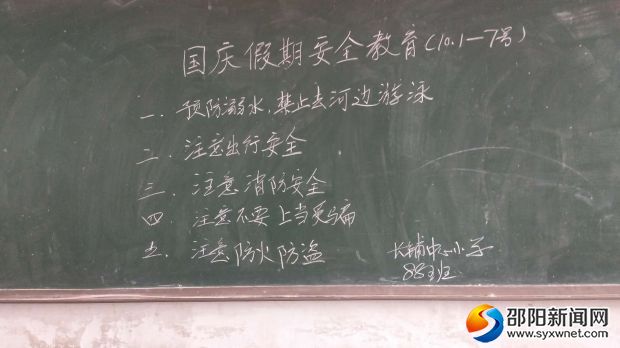 国庆假期安全教育(10.1—7号)
一. 预防溺水,禁止去河边游泳
二. 注意出行安全
三. 注意消防安全
四. 注意不要上当受骗
五. 注意防火防盗
长铺中心小学
88班
邵阳新闻网
www.syxwnet.com